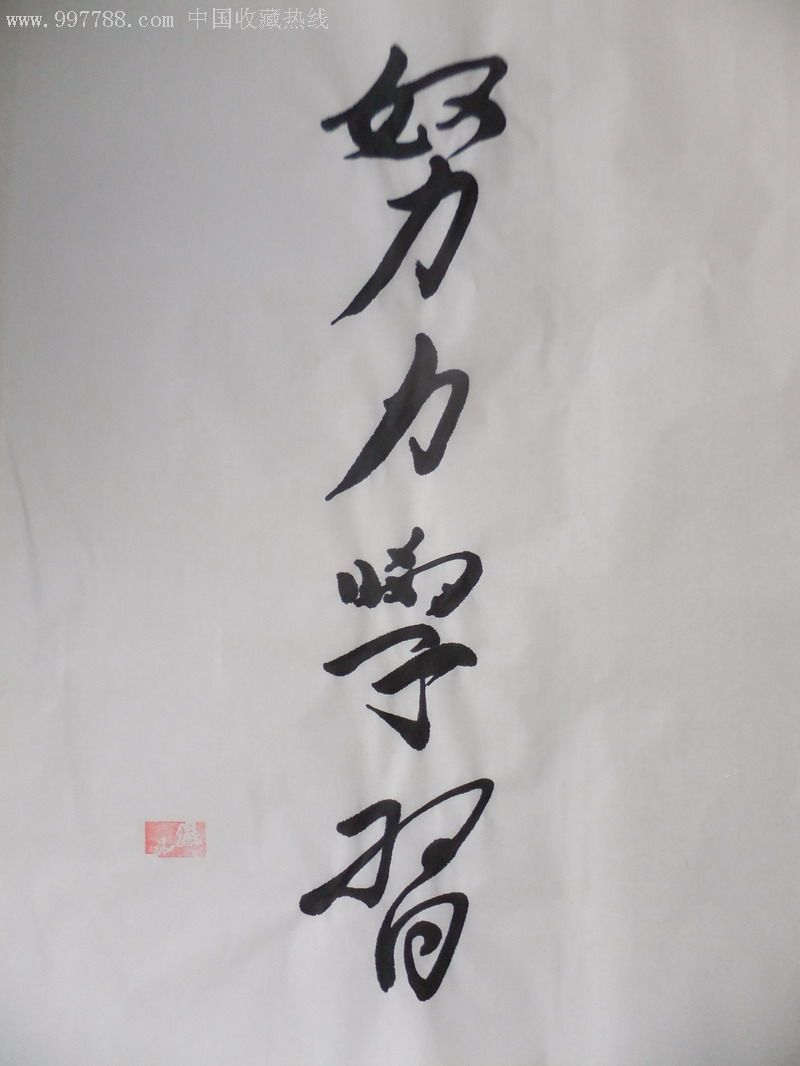 www.997788.com 中国收藏热线
努力學習